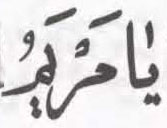 يَا مَرْيَمُ